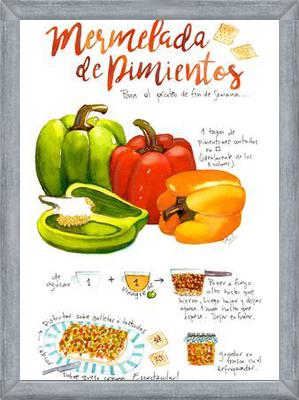 Mermelada
de Pimientos
Para el picoteo de fin de semana...
1 tazon de
pimentones cortados
en
(idealmente de los
3 colores).
de
azúcar
1
+
1
Vinagre
Poner a fuego
alto hasta que
hierva, luego bajar y dejar
aprox 1 hora hasta que
espese. Dejar enfriar.
Disfrutar sobre galletas o tostadas
sobre queso crema. Espectacular!
guardar en
frasco en el
Refrigerador.